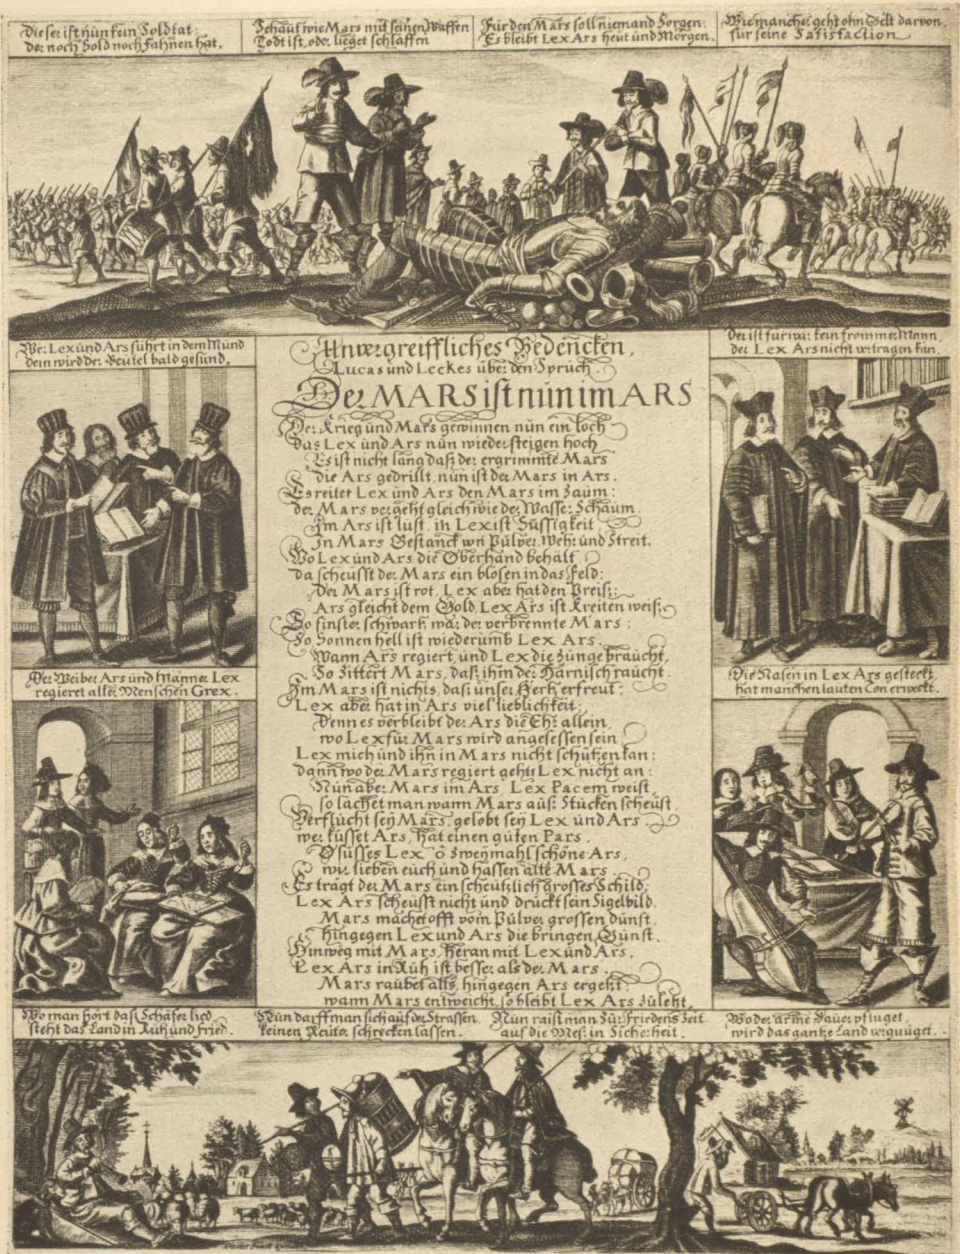 Dieser ist nun kein Soldat:
der noch Sold noch Fahnen hat.
Schaut wie Mars mit seinen Waffen
Todt ist, oder lieget schlaffen
Für den Mars soll niemand Sorgen:
Es bleibt Lex Ars heut und Morgen.
Wie mancher geht ohn Gelt darvon,
für seine Satisfaction
Wer Lex und Ars führt in dem Mund
dem wird der Beutel bald gesund.
Der ist furwar kein frommer Mann,
der Lex Ars nicht vertragen kan.
Unvergreiffliches Bedencken,
Lucas und Leckes über den Spruch.
Der MARS ist nun im ARS
Der Krieg und Mars gewinnen nun ein loch
Das Lex und Ars nun wieder steigen hoch
Es ist nicht lang das der ergrimmte Mars
die Ars gedrillt, nun ist der Mars in Ars.
Es reitet Lex und Ars den Mars im Zaum:
der Mars vergeht gleich wie der Wasser Schaum.
Im Ars ist lust, in Lex ist Süssigkeit
In Mars Gestanck von Pulver, Wehr und Streit.
Wo Lex und Ars die Oberhand behält
da scheusst der Mars ein blosen in das feld:
Der Mars ist rot, Lex aber hat den Preis:
Ars gleicht dem Gold, Lex Ars ist Kreiten weis:
So finster schwartz war der verbrennte Mars:
So Sonnen hell ist wiederumb Lex Ars.
Wann Ars regiert, und Lex die Zunge braucht,
So zittert Mars, das ihm der Harnisch raucht.
Im Mars ist nichts, das unser Hertz erfreut:
Lex aber hat in Ars viel lieblichkeit:
Denn es verbleibt der Ars die Ehr allein,
wo Lex für Mars wird angesessen sein
Lex mich und ihn in Mars nicht schützen kan:
dann wo der Mars regiert gehts Lex nicht an:
Nun aber Mars im Ars, Lex Pacem weist,
so lachet man wann Mars aus Stücken scheust.
Verflucht sey Mars, gelobt sey Lex und Ars
wer küsset Ars, hat einen guten Pars.
O süsses Lex ô zweymahl schöne Ars,
wir lieben euch und hassen alte Mars
Es trägt der Mars ein scheutzlich grosses Schild,
Lex Ars scheusst nicht und drückt sein Sigelbild.
Mars machet offt vom Pulver grossen dunst
hingegen Lex und Ars die bringen Gunst.
Hinweg mit Mars, heran mit Lex und Ars,
Lex Ars in Ruh ist besser als der Mars.
Mars raubet alls, hingegen Ars ergetzt:
wann Mars entweicht, so bleibt Lex Ars zuletzt.
Der Weiber Ars und Männer Lex
regieret aller Menschen Grex.
Die Nasen in Lex Ars gesteckt
hat manchen lauten Ton erweckt.
Wo man hört das Schäfer lied,
steht das Land in Ruh und fried.
Nun darff man sich auf der Strassen
keinen Reuter schrecken lassen.
Nun raist man zur Friedens Zeit
auf die Mess in Sicherheit.
Wo der arme Bauer pflüget,
wird das gantze Land vergnüget.